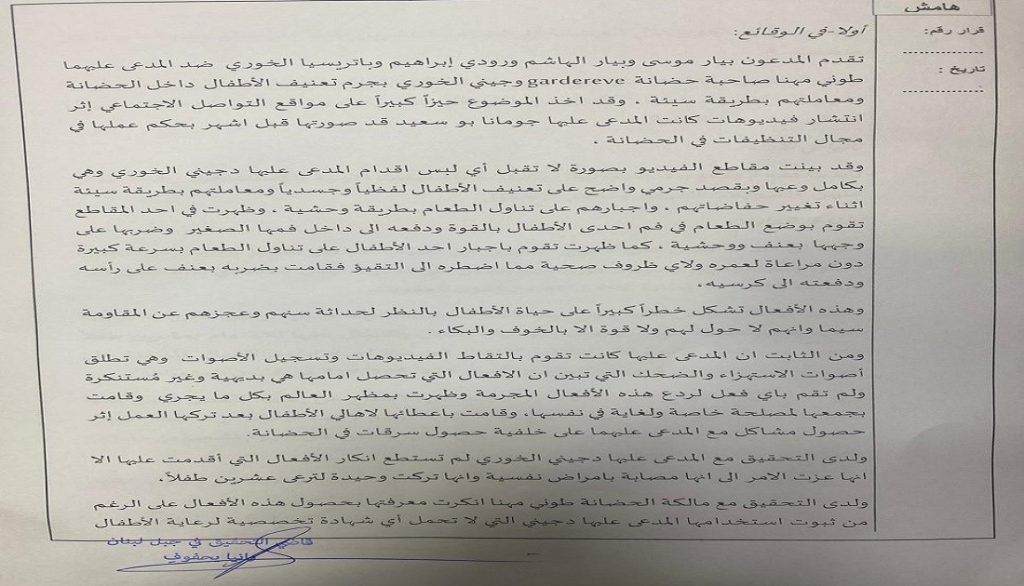 هامش
قرار رقم:
..................
تاريخ :
..................
أولا-في الوقائع:
تقدم المدعون بيار موسى وبيار الهاشم ورودي إبراهيم وباتريسيا الخوري ضد المدعى عليهما
طوني مهنا صاحبة حضانة gardereve وجيني الخوري بجرم تعنيف الأطفال داخل الحضانة
ومعاملتهم بطريقة سيئة . وقد اخذ الموضوع حيزاً كبيراً على مواقع التواصل الاجتماعي إثر
انتشار فيديوهات كانت المدعى عليها جومانا بو سعيد قد صورتها قبل اشهر بحكم عملها في
مجال التنظيفات في الحضانة .
وقد بينت مقاطع الفيديو بصورة لا تقبل أي لبس اقدام المدعى عليها دجيني الخوري وهي
بكامل وعيها وبقصد جرمي واضح على تعنيف الأطفال لفظياً وجسدياً ومعاملتهم بطريقة سيئة
اثناء تغيير حفاضاتهم . واجبارهم على تناول الطعام بطريقة وحشية . وظهرت في احد المقاطع
تقوم بوضع الطعام في فم احدى الأطفال بالقوة ودفعه الى داخل فمها الصغير وضربها على
وجهها بعنف ووحشية . كما ظهرت تقوم باجبار احد الأطفال على تناول الطعام بسرعة كبيرة
دون مراعاة لعمره ولاي ظروف صحية مما اضطره الى التقيؤ فقامت بضربه بعنف على رأسه
ودفعته الى كرسيه.
وهذه الأفعال تشكل خطراً كبيراً على حياة الأطفال بالنظر لحداثة سنهم وعجزهم عن المقاومة
سيما وانهم لا حول لهم ولا قوة الا بالخوف والبكاء .
ومن الثابت ان المدعى عليها كانت تقوم بالتقاط الفيديوهات وتسجيل الأصوات وهي تطلق
أصوات الاستهزاء والضحك التي تبين ان الافعال التي تحصل امامها هي بديهية وغير مُستنكرة
ولم تقم باي فعل لردع هذه الأفعال المجرمة وظهرت بمظهر العالم بكل ما يجري وقامت
بجمعها لمصلحة خاصة ولغاية في نفسها. وقامت باعطائها لاهالي الأطفال بعد تركها العمل إثر
حصول مشاكل مع المدعى عليهما على خلفية حصول سرقات في الحضانة.
ولدى التحقيق مع المدعى عليها دجيني الخوري لم تستطع انكار الأفعال التي أقدمت عليها الا
انها عزت الامر الى انها مصابة بامراض نفسية وانها تركت وحيدة لترعى عشرين طفلاً.
ولدى التحقيق مع مالكة الحضانة طوني مهنا انكرت معرفتها بحصول هذه الأفعال على الرغم
من ثبوت استخدامها المدعى عليها دجيني التي لا تحمل أي شهادة تخصصية لرعاية الأطفال
قاضي التحقيق في جبل لبنان
رانيا يحفوفي